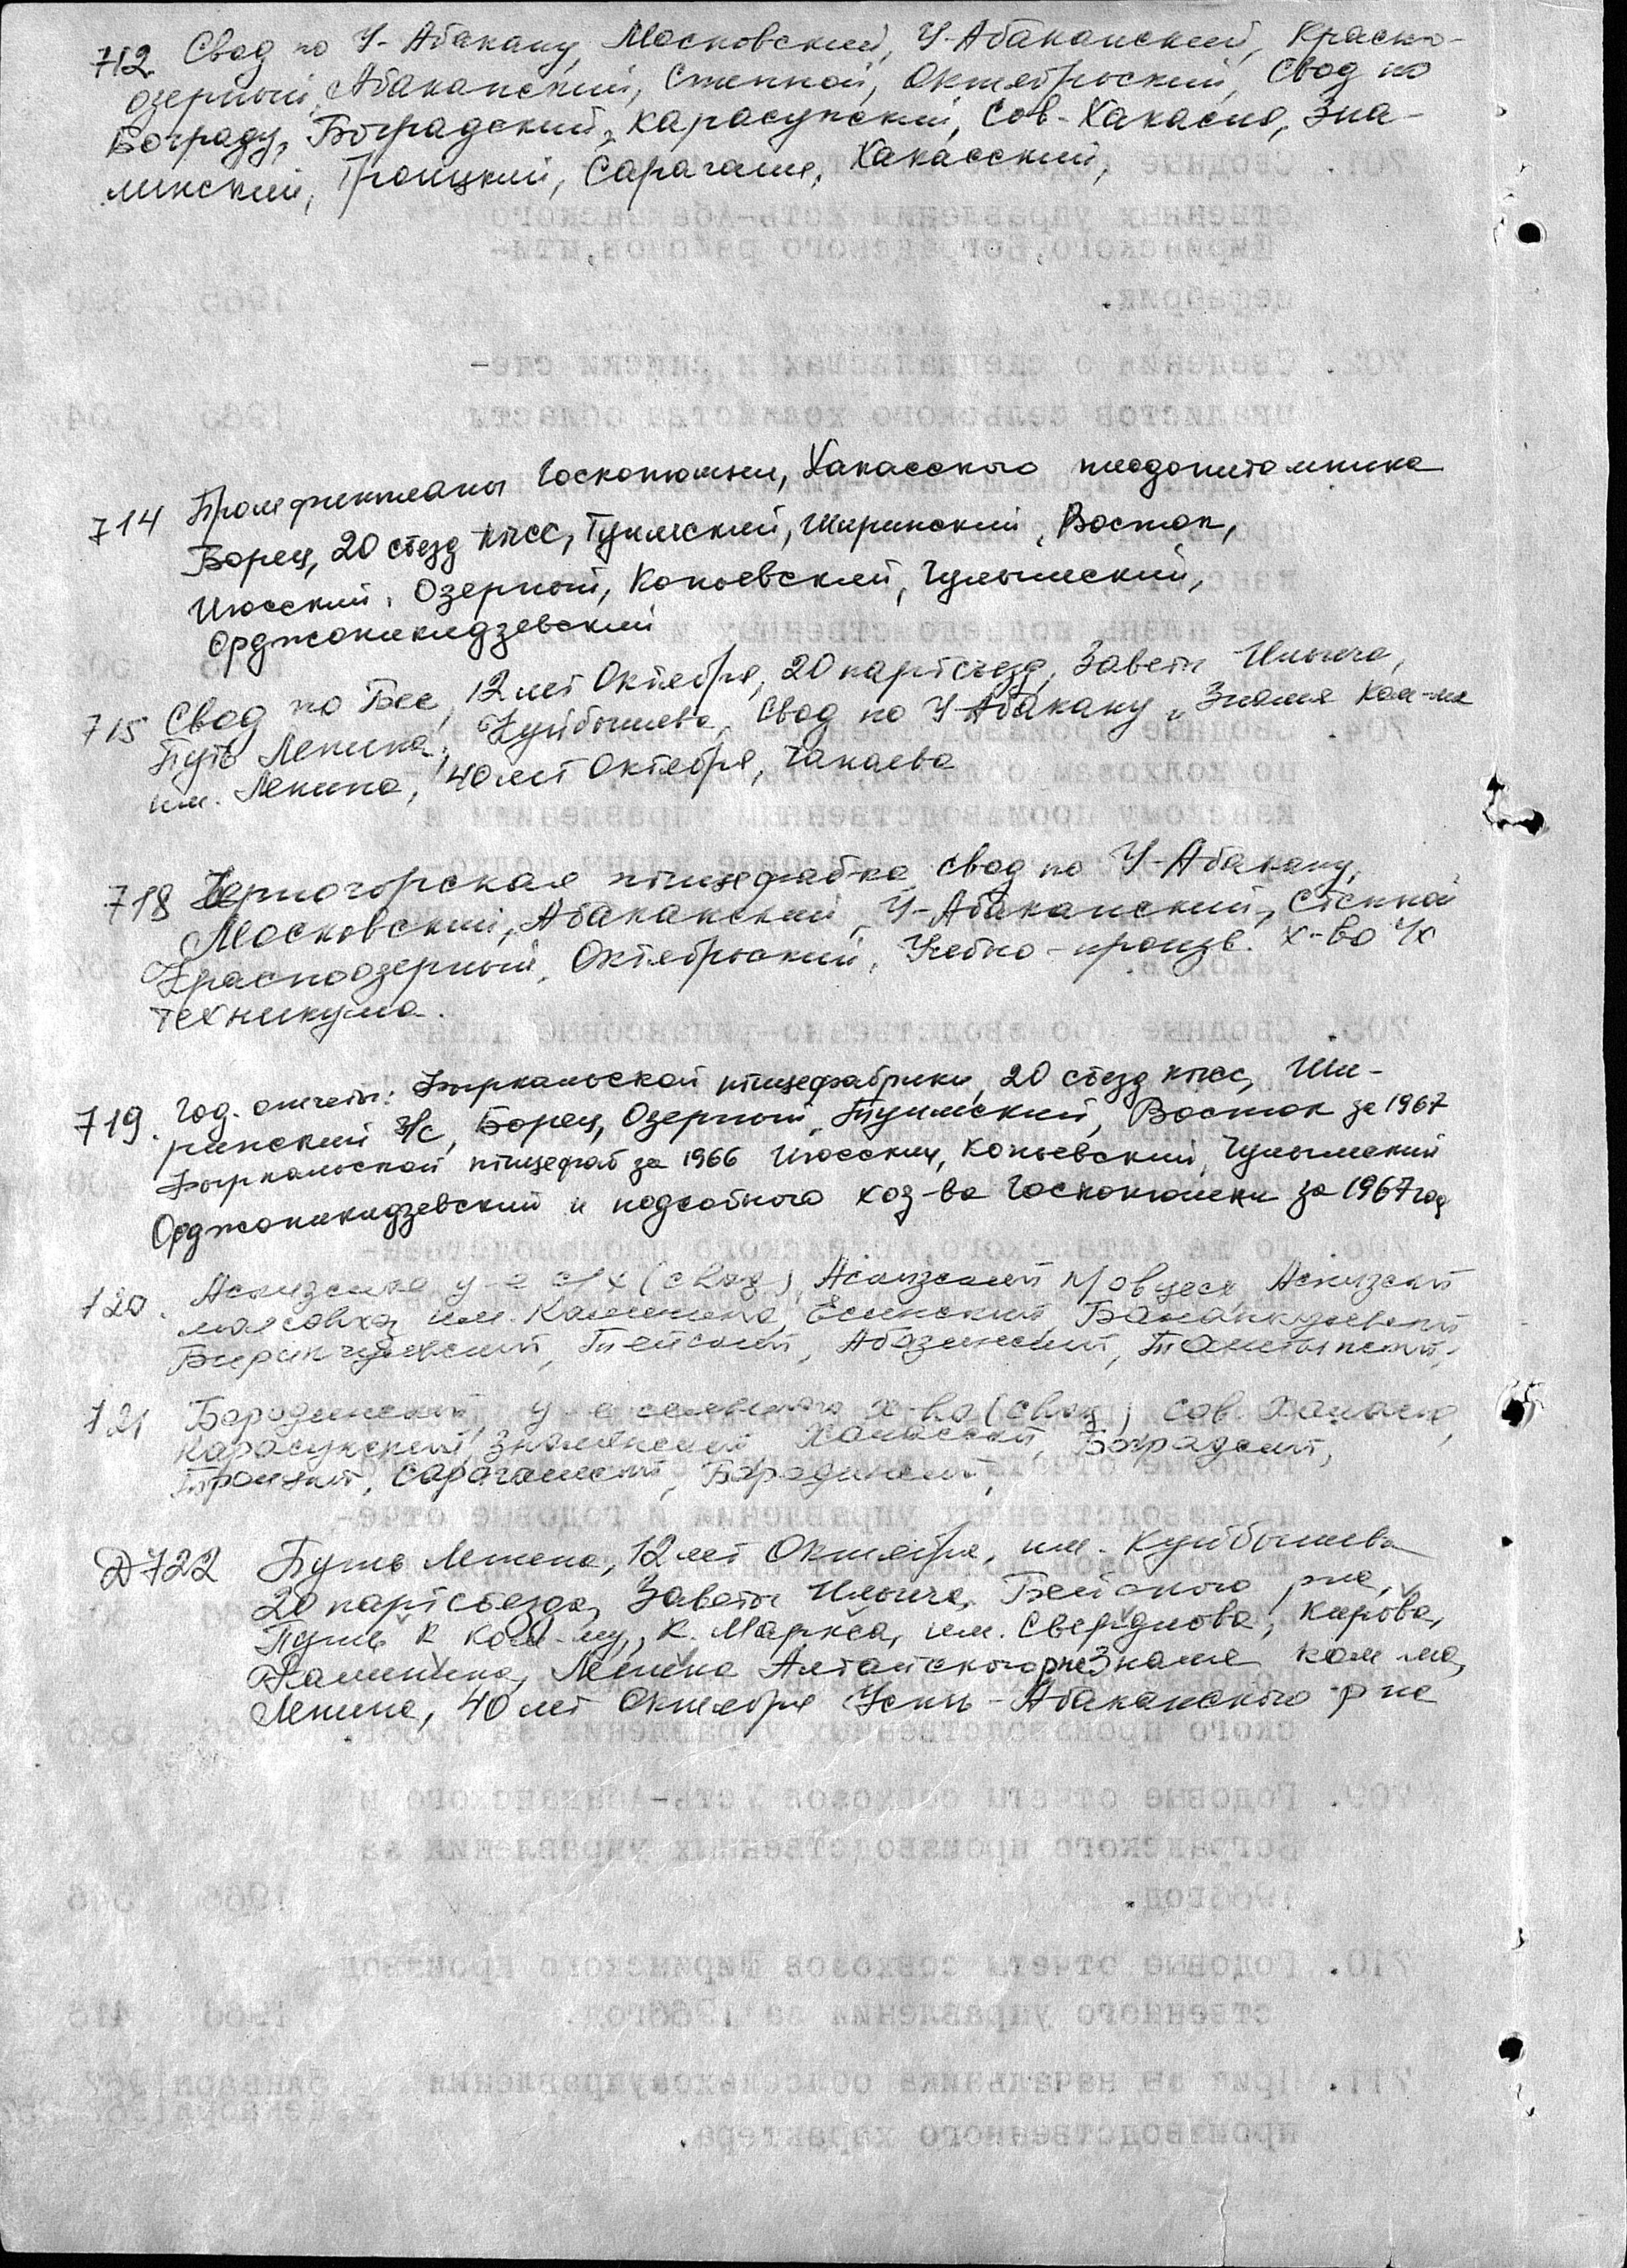 712. Свод по У-Абакану, Московский, У-Абаканский, Красно-
озерный, Абаканский, Степной, Октябрьский, Свод по
Бограду, Боградский, Карасукский, Сов-Хакасия, Зна-
минский, Троицкий, Сарагаш, Хакасский,
714 Промфинпланы Госконюшни, Хакасского плодопитомника
Борец, 20 съезд КПСС, Туимский, Ширинский, Восток,
Июсский, Озерный, Копьевский, Чулымский,
Орджоникидзевский
715 Свод по Бее, 12 лет Октября, 20 партсъезд, Заветы Ильича,
Путь Ленина, Куйбышева, Свод по У-Абакану, Знамя Ком-ма
им. Ленина, 40 лет Октября, Чапаева
718 Черногорская птицефабка свод по У-Абакану,
Московский, Абаканский, У-Абаканский, Степной
Красноозерный, Октябрьский, Учебно-произв. х-во с/х
техникума.
719. Год. отчеты: Фыркальской птицефабрики, 20 съезд КПСС, Ши-
ринский з/с, Борец, Озерный, Туимский, Восток за 1967
Фыркальской птицефаб за 1966 Июсский, Копьевский, Чулымский
Орджоникидзевский и подсобного хоз-ва Госконюшни за 1967 год
720. Аскизское у-е с/х (свод), Аскизский п/овцесх, Аскизский
мясосовхоз, им. Калинина, Есинский, Балыксинский
Бирикчульский, Тейский, Абазинский, Таштыпский,
721 Бородинский, у-е сельского х-ва (свод) сов. Хакасия,
Карасукский, Знаменский, Хакасский, Боградский,
Троицкий, Сарагашский, Бородинский,
Д 722 Путь Ленина, 12 лет Октября, им. Куйбышева
20 партсъезда, Заветы Ильича, Бейского р-на,
Путь к ком-му, К. Маркса, им. Свердлова, Кирова,
Калинина, Ленина Алтайского р-на Знамя ком-ма,
Ленина, 40 лет Октября Усть-Абаканского р-на